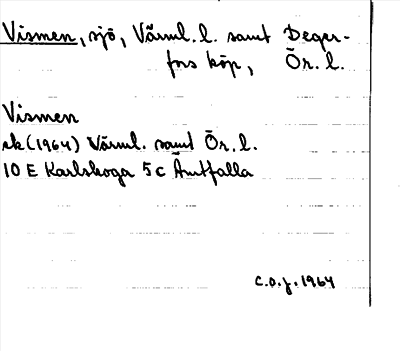 Vismen, sjö, Värml. l. samt Deger-
fors köp, Ör. l.
Vismen
ek (1964) Värml. samt Ör. l.
10 E Karlskoga 5 c Åmtfalla
C.O.J. 1964